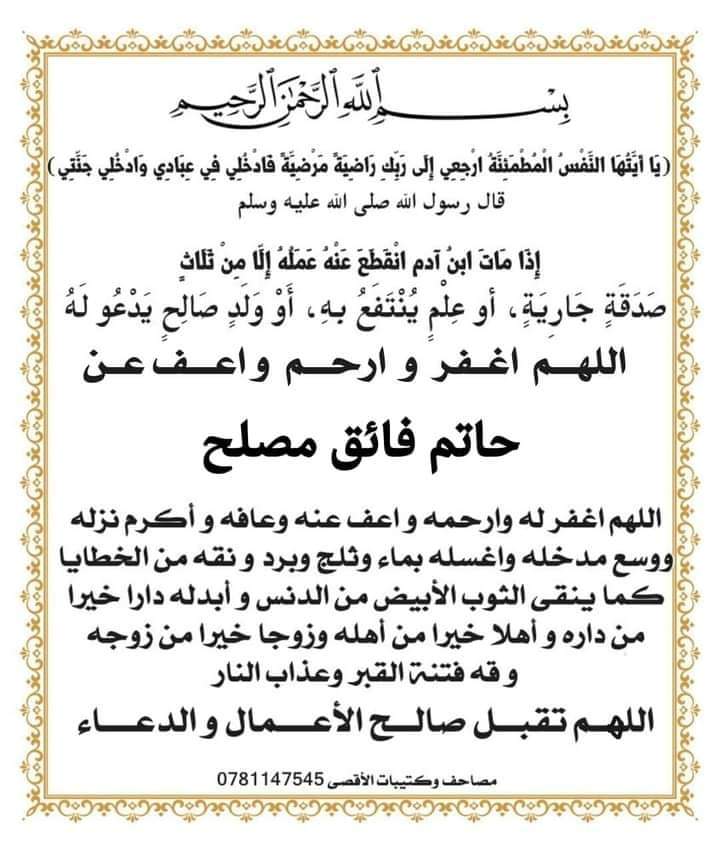 بِسْمِ اللَّهِ الرَّحْمَٰنِ الرَّحِيمِ
(يَا أَيَّتُهَا النَّفْسُ الْمُطْمَئِنَّةُ ارْجِعِي إِلَى رَبِّكِ رَاضِيَةً مَرْضِيَّةً فَادْخُلِي فِي عِبَادِي وَادْخُلِي جَنَّتِي)
قال رسول الله صلى الله عليه وسلم
إِذَا مَاتَ ابنُ آدم انْقَطَعَ عَنْهُ عَمَلُهُ إِلَّا مِنْ ثَلَاثٍ
صَدَقَةٍ جَارِيَةٍ، أو عِلْمٍ يُنْتَفَعُ بهِ، أَوْ وَلَدٍ صَالِحٍ يَدْعُو لَهُ
اللهم اغفر و ارحم واعف عن
حاتم فائق مصلح
اللهم اغفر له وارحمه و اعف عنه وعافه و أكرم نزله
ووسع مدخله واغسله بماء وثلج وبرد و نقه من الخطايا
كما ينقى الثوب الأبيض من الدنس و أبدله دارا خيرا
من داره و أهلا خيرا من أهله وزوجا خيرا من زوجه
و قه فتنة القبر وعذاب النار
اللهم تقبل صالح الأعمال و الدعاء
مصاحف وكتيبات الأقصى 0781147545